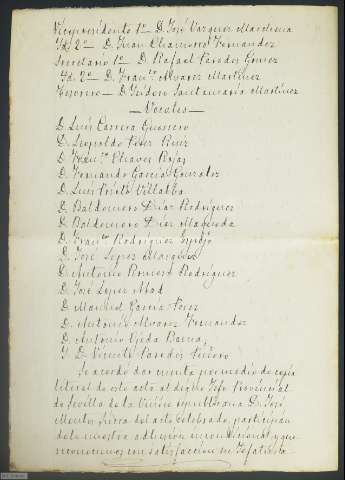 Vicepresidente 1º D. José Vazquez Marchena
Id. 2º D. Juan Chamorro Fernandez
Secretario 1º D. Rafael Paredes Gomez
Id. 2º D. Franco Alvarez Martinez
Tesorero D. Isidoro Santamaria Martinez
Vocales
D. Luis Carrera Guerrero
D. Leopoldo Perez Ruiz
D. Franco Chaves Rojas
D. Fernando Garcia Gonzalez
D. Luis Prieto Villalba
D. Baldomero Diaz Rodriguez
D. Baldomero Diaz
D. Franco Rodriguez
D. José Lopez Marquez
D. Antonio Romero Rodriguez
D. José Lopez
D. Manuel Garcia Perez
D. Antonio Alvarez Fernandez
D. Antonio Ojeda Barea
Y D. Vicente Paredes
Se acordó dar cuenta por medio de copia
literal de este acta al digno Jefe Provincial
de Sevilla de la Union Republicana D. José
Montes Sierra del acto celebrado, participan
dole nuestra adhesion incondicional y que
reconocemos con satisfaccion su Jefatura.